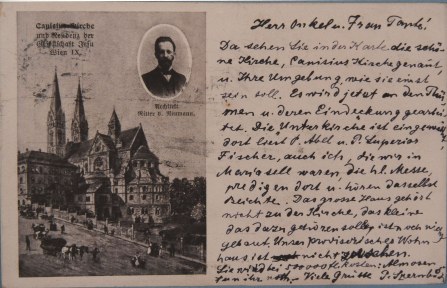 Canisius-Kirche
und Residenz der
Gesellschaft Jesu
Wien IX.
Architekt
Ritter v. Neumann.
Herr Onkel u. Frau Tante!
Da sehen Sie in der Karte die schö-
ne Kirche, Canisius Kirche genannt
u. Ihre Umgebung, wie sie einst
sein soll. Es wird jetzt an den Thür-
men u. deren Eindeckung gearbei-
tet. Die Unterkirche ist eingeweiht
dort lesen P. Abel u. P. Superior
Fischer, auch ich, die wir in
waren, die hl. Messe,
predigen dort u. hören daselbst
Beichte. Das grosse Haus gehört
nicht zu der Kirche, das kleine
das dazu gehören soll, ist noch nicht
gebaut. Unser provisorisches Wohn-
haus ist nicht zu sehen.
Sie wird bei kosten: Almosen
noth. Viele Grüsse P.